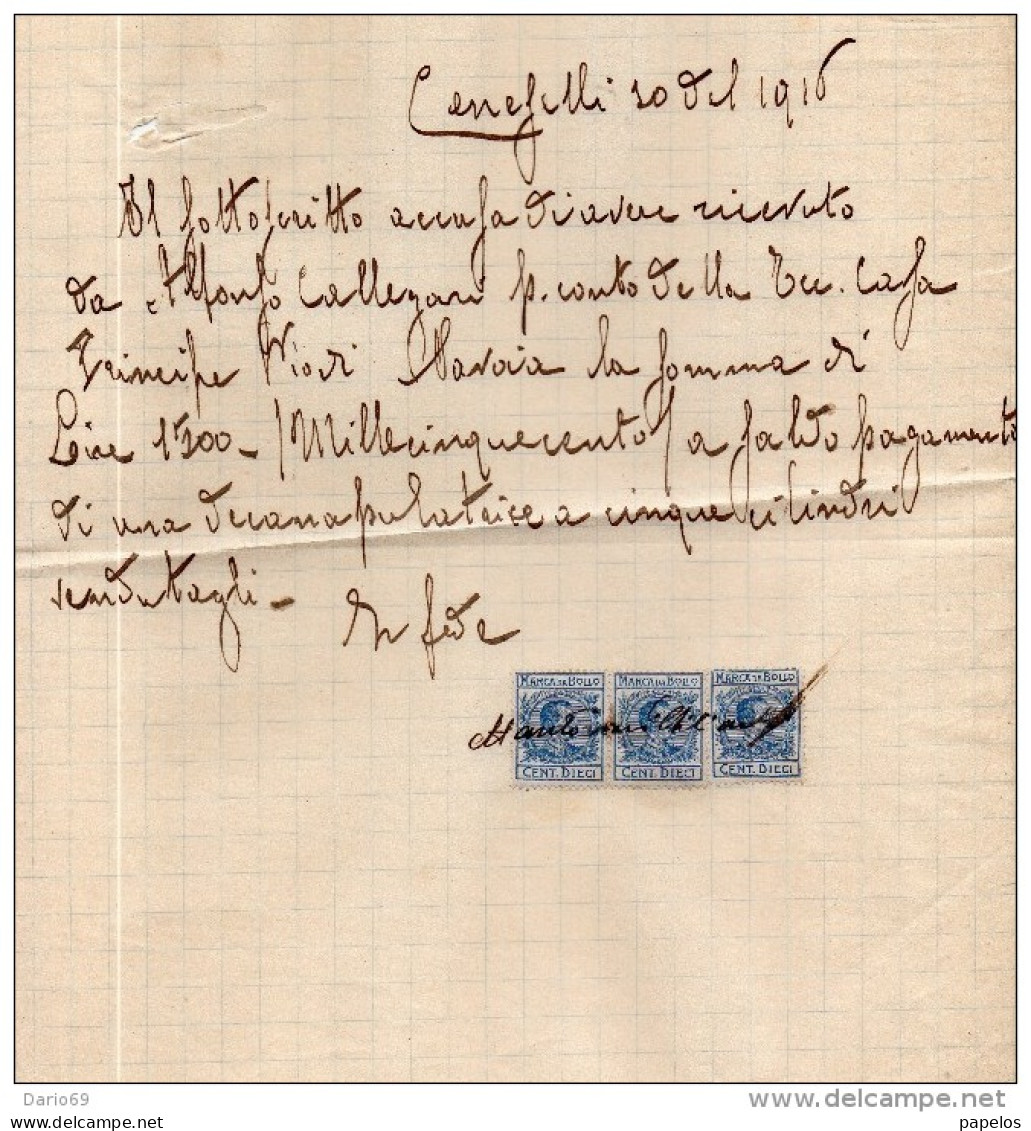 Canefelli 20 del 1916
Il sottoscritto accusa di avere ricevuto
da Alfonso Callegari p. conto della Ecc. Casa
Principe Pio di Savoia la somma di
Lire 1500 - /Millecinquecento/ a saldo pagamento
di una decanapulatrice a cinque cilindri
vendutagli -
In fede
MARCA DA BOLLO MARCA DA BOLLO MARCA DA BOLLO
Mantovani
CENT. DIECI CENT. DIECI CENT. DIECI
delcampe.net
Dario69 papelos